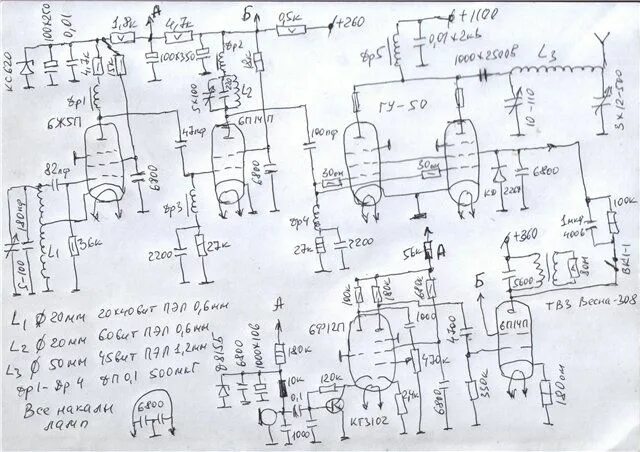 КС620
100х250
0,01
1,8к
А
4,7к
Б
0,5к
+260
+1100
4,7к
100х350
Др2
Др5
0,01×2кв
1000×2500В
L3
Др1
5х100
L2
6Ж5П
47пф
6П14П
100пф
ГУ-50
10-110
3х12-500
82пф
6800
6800
30ом
30ом
КД
6800
180пф
5-100
L1
36к
Др3
2200
27к
Др4
27к
2200
1мкф
400В
100к
ВК1-1
56к
А
+360
5600
80м
Б
ТВЗ Весна-308
L1 Ø 20мм 20х40вит ПЭЛ 0,6мм
L2 Ø 20мм 60вит ПЭЛ 0,6мм
L3 Ø 50мм 45вит ПЭЛ 1,2мм
Др1-Др4 ДП0,1 500мкГ
Все накалы
ламп
6800
А
180к
Д815Б
6800
1000х10В
10к
0,1
1000
120к
КТ3102
6Ф12П
100к
180к
680к
1000
470к
2,4к
4700
6П14П
180ом